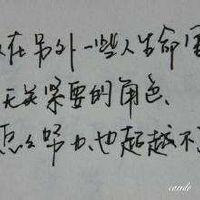 在另外一些人生命里
无关紧要的角色、
怎么努力也超越不